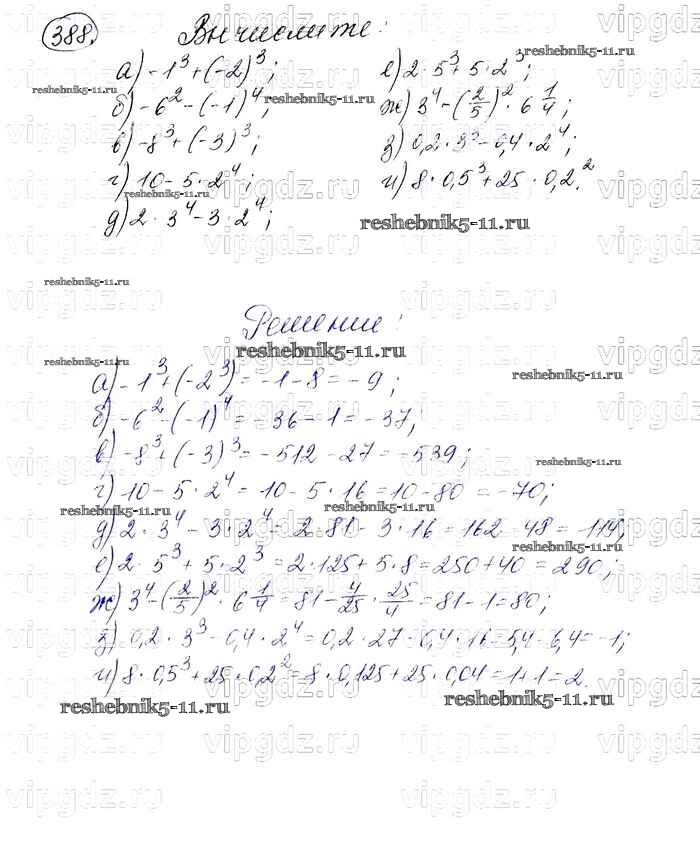 388. Вычислите:
а) -1³ + (-2)³;
б) -6² - (-1)⁴;
в) -8³ + (-3)³;
г) 10 - 5 · 2⁴;
д) 2 · 3⁴ - 3 · 2⁴;
е) 2 · 5³ + 5 · 2³;
ж) 3⁴ - (2/5)² · 6 1/4;
з) 0,2 · 3³ - 0,4 · 2⁴;
и) 8 · 0,5³ + 25 · 0,2.²
Решение:
а) -1³ + (-2³) = -1 - 8 = -9;
б) -6² - (-1)⁴ = -36 - 1 = -37;
в) -8³ + (-3)³ = -512 - 27 = -539;
г) 10 - 5 · 2⁴ = 10 - 5 · 16 = 10 - 80 = -70;
д) 2 · 3⁴ - 3 · 2⁴ = 2 · 81 - 3 · 16 = 162 - 48 = 114;
е) 2 · 5³ + 5 · 2³ = 2 · 125 + 5 · 8 = 250 + 40 = 290;
ж) 3⁴ - (2/5)² · 6 1/4 = 81 - 4/25 · 25/4 = 81 - 1 = 80;
з) 0,2 · 3³ - 0,4 · 2⁴ = 0,2 · 27 - 0,4 · 16 = 5,4 - 6,4 = -1;
и) 8 · 0,5³ + 25 · 0,2² = 8 · 0,125 + 25 · 0,04 = 1 + 1 = 2.
reshebnik5-11.ru
vipgdz.ru